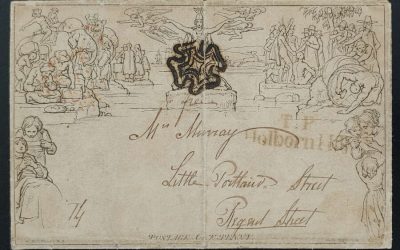 T.P
Holborn Hill
Mrs Murray
Little Portland Street
Regent Street
74
POSTAGE ONE PENNY.